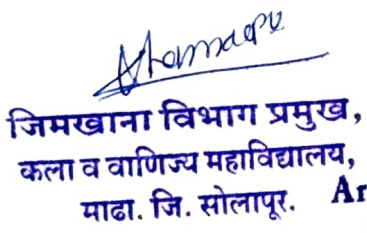 जिमखाना विभाग प्रमुख,
कला व वाणिज्य महाविद्यालय,
माढा. जि. सोलापूर.
Ar